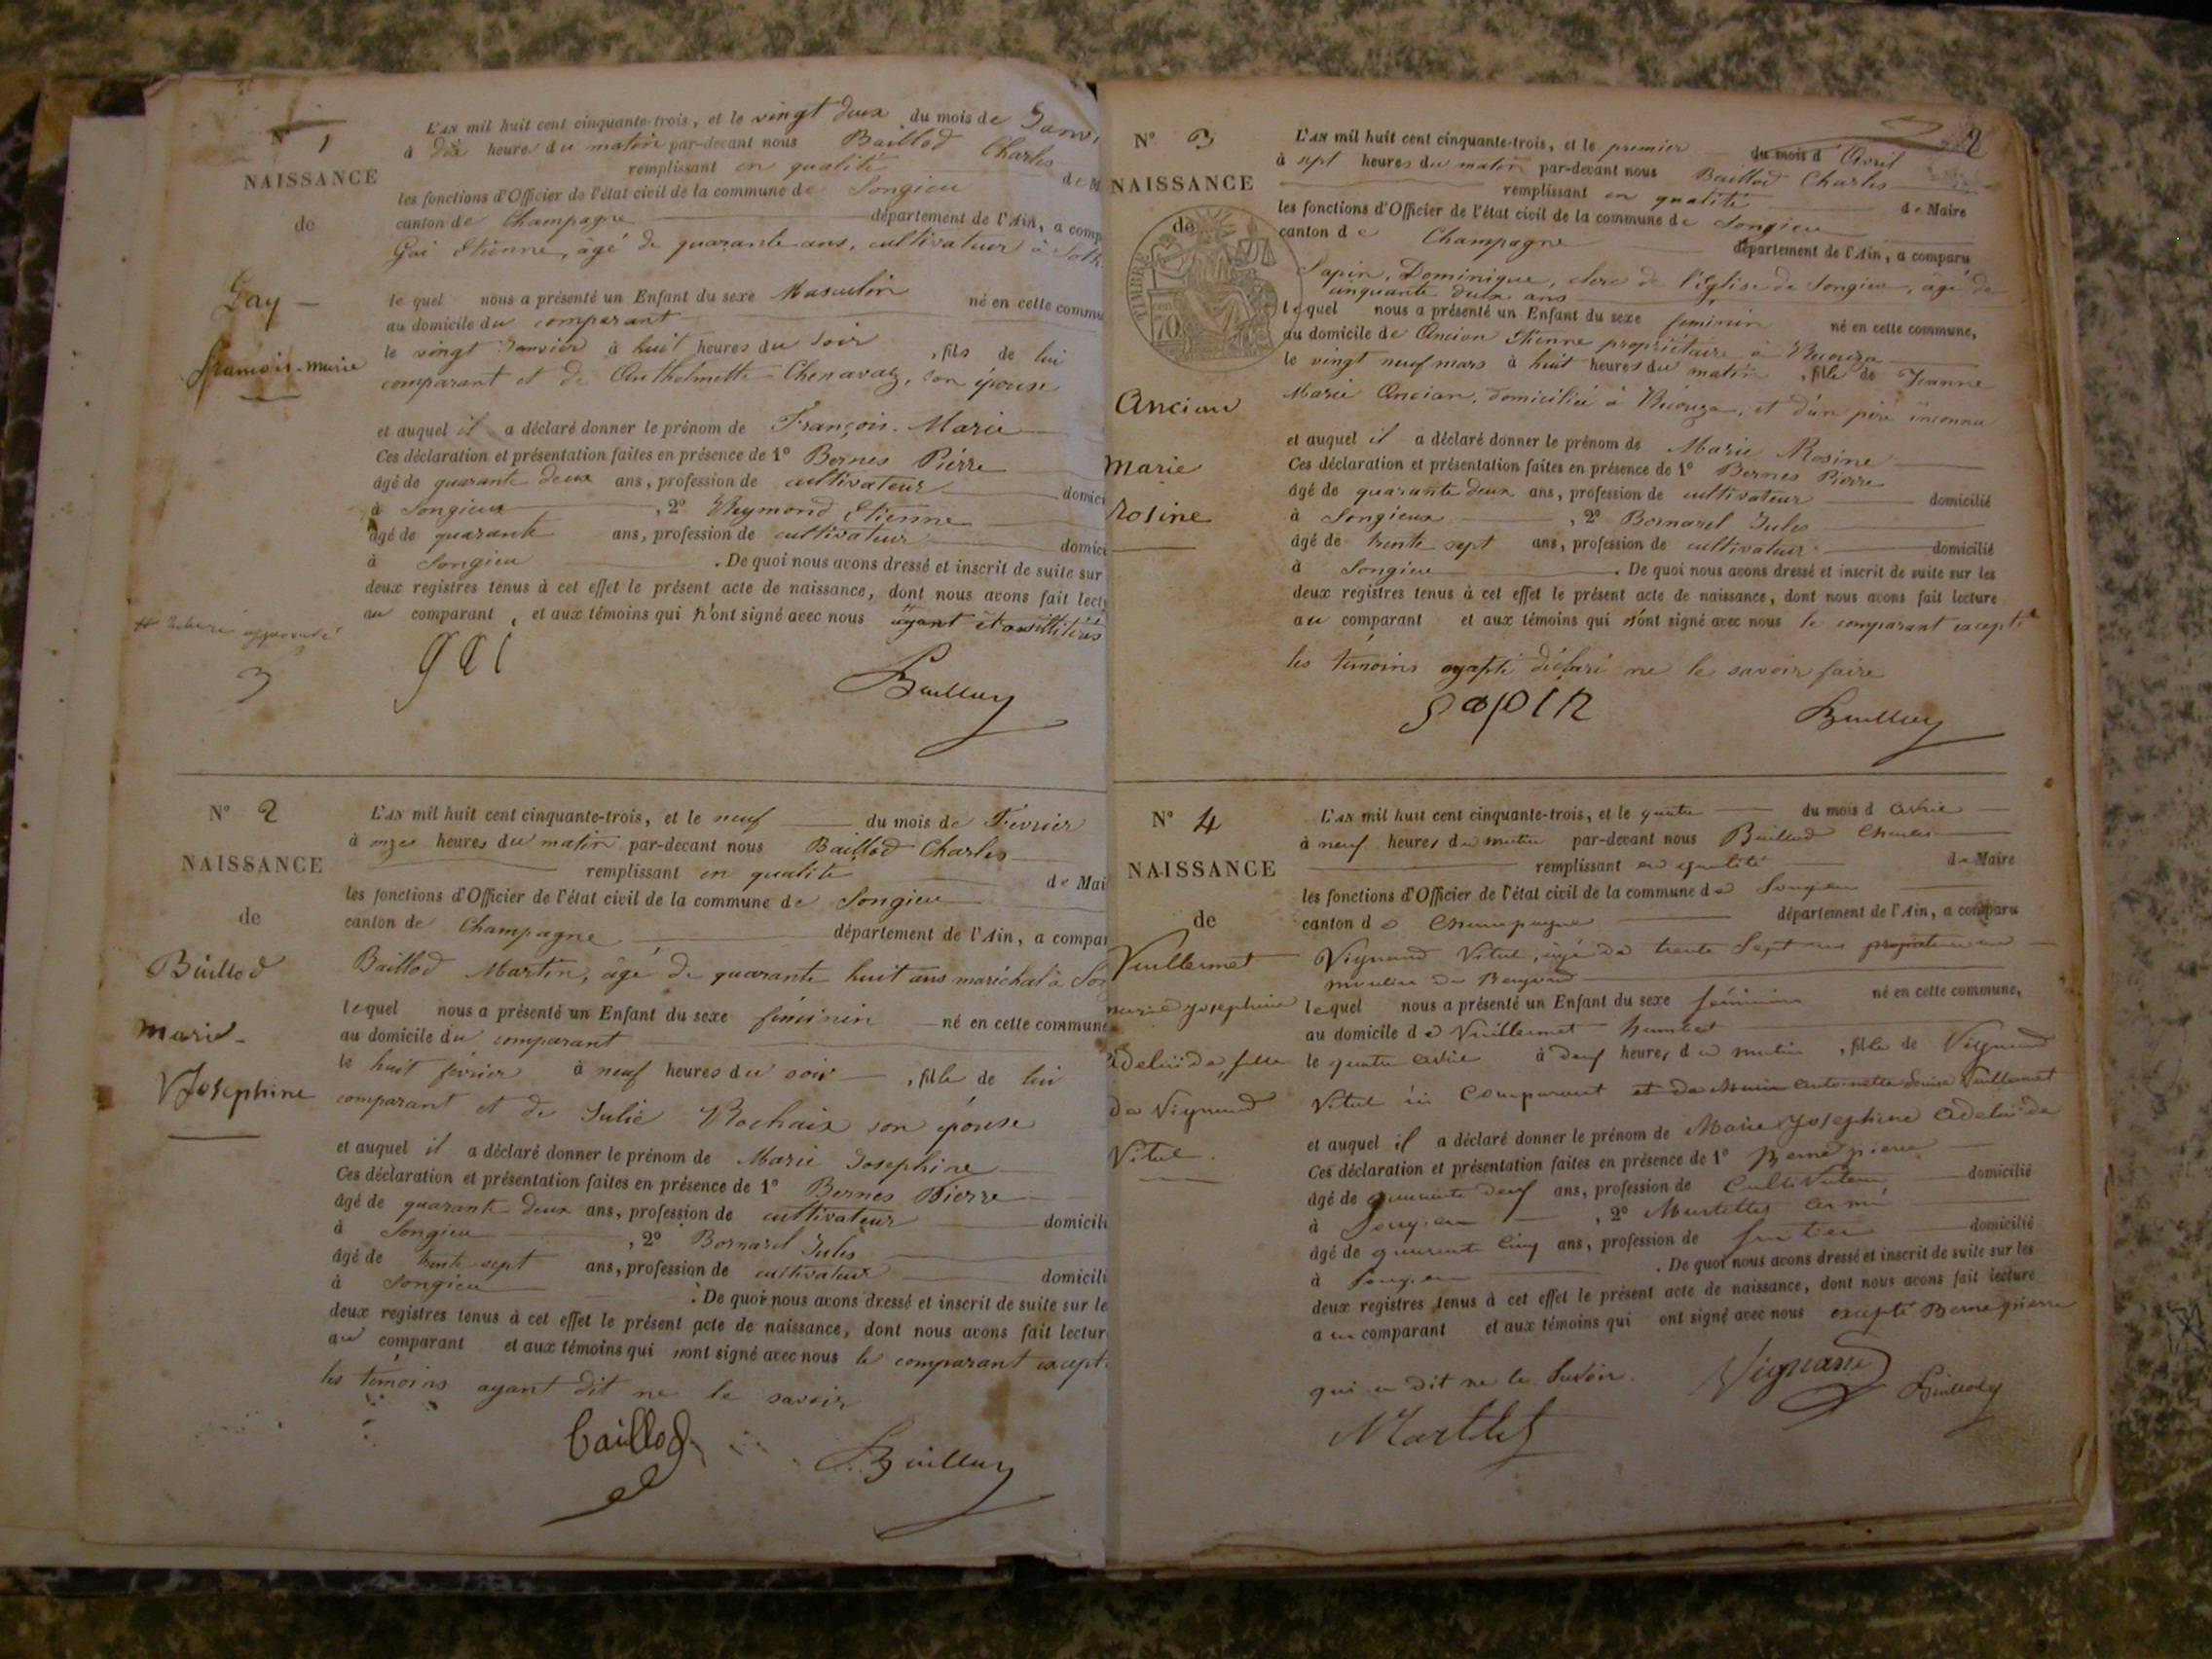 N° 1
NAISSANCE
de
Gay
françois-marie
L'AN mil huit cent cinquante-trois, et le vingt deux du mois de Janvi
à dix heures du matin par-devant nous Baillod Charles
remplissant en qualité de M
les fonctions d'Officier de l'état civil de la commune de Songieu
canton de Champagne département de l'Ain, a comp
Gai Etienne, âgé de quarante ans, cultivateur à Soth
le quel nous a présenté un Enfant du sexe Masculin né en cette commu
au domicile du comparant
le vingt Janvier à huit heures du soir, fils de lui
comparant et de Anthelmette Chenavaz, son épouse
et auquel il a déclaré donner le prénom de François-Marie
Ces déclaration et présentation faites en présence de 1° Bernes Pierre
âgé de quarante deux ans, profession de cultivateur domici
à Songieu, 2° Reymond Etienne
âgé de quarante ans, profession de cultivateur domici
à Songieu. De quoi nous avons dressé et inscrit de suite sur
deux registres tenus à cet effet le présent acte de naissance, dont nous avons fait lectu
au comparant, et aux témoins qui n'ont signé avec nous ayant
3
gai
Bailloz
N° 2
NAISSANCE
de
Baillod
Marie
Josephine
L'AN mil huit cent cinquante-trois, et le neuf du mois de Fevrier
à onze heures du matin par-devant nous Baillod Charles
remplissant en qualité de Mai
les fonctions d'Officier de l'état civil de la commune de Songieu
canton de Champagne département de l'Ain, a compar
Baillod Martin, âgé de quarante huit ans maréchal à So
lequel nous a présenté un Enfant du sexe féminin né en cette commune
au domicile du comparant
le huit février à neuf heures du soir, fille de lui
comparant et de Julie Rochaix son épouse
et auquel il a déclaré donner le prénom de Marie Josephine
Ces déclaration et présentation faites en présence de 1° Bernes Pierre
âgé de quarante deux ans, profession de cultivateur domicili
à Songieu, 2° Bornarel Jules
âgé de trente sept ans, profession de cultivateur domicili
à Songieu. De quoi nous avons dressé et inscrit de suite sur le
deux registres tenus à cet effet le présent acte de naissance, dont nous avons fait lectur
au comparant et aux témoins qui n'ont signé avec nous le comparant except
les témoins ayant dit ne le savoir
baillod
Bailloz
2
N° 3
NAISSANCE
de
TIMBRE
70
Ancian
Marie
Rosine
L'AN mil huit cent cinquante-trois, et le premier du mois d Avril
à sept heures du matin par-devant nous Baillod Charles
remplissant en qualité de Maire
les fonctions d'Officier de l'état civil de la commune de Songieu
canton de Champagne département de l'Ain, a comparu
Sapin, Dominique, clerc de l'Eglise de Songieu, âgé de
cinquante deux ans
lequel nous a présenté un Enfant du sexe féminin né en cette commune,
au domicile de Ancian Etienne propriétaire à
le vingt neuf mars à huit heures du matin, fille de Jeanne
Marie Ancian, domiciliée à et d'un père inconnu
et auquel il a déclaré donner le prénom de Marie Rosine
Ces déclaration et présentation faites en présence de 1° Bernes Pierre
âgé de quarante deux ans, profession de cultivateur domicilié
à Songieux, 2° Bornarel Jules
âgé de trente sept ans, profession de cultivateur domicilié
à Songieu. De quoi nous avons dressé et inscrit de suite sur les
deux registres tenus à cet effet le présent acte de naissance, dont nous avons fait lecture
au comparant et aux témoins qui n'ont signé avec nous le comparant excepté
les témoins déclaré ne le savoir faire
sapin
Bailloz
N° 4
NAISSANCE
de
Vuillermet
marie Josephine
Adelaïde, fille
de Vignand
Vital
L'AN mil huit cent cinquante-trois, et le quatre du mois d Avril
à neuf heures du matin par-devant nous Baillod Charles
remplissant en qualité de Maire
les fonctions d'Officier de l'état civil de la commune de Songieu
canton de Champagne département de l'Ain, a comparu
Vignand Vital, âgé de trente Sept ans propriétaire au
moulin de
lequel nous a présenté un Enfant du sexe féminin né en cette commune,
au domicile de Vuillermet
le quatre avril à heures du matin, fille de Vignand
Vital ici Comparant et de Marie antoinette Louise Vuillermet
et auquel il a déclaré donner le prénom de Marie Josephine Adelaïde
Ces déclaration et présentation faites en présence de 1° Berne pierre
âgé de quarante deux ans, profession de Cultivateur domicilié
à Songieu, 2°
âgé de quarante cinq ans, profession de domicilié
à Songieu. De quoi nous avons dressé et inscrit de suite sur les
deux registres tenus à cet effet le présent acte de naissance, dont nous avons fait lecture
au comparant et aux témoins qui ont signé avec nous excepté Berne pierre
qui a dit ne le Savoir.
Vignand
Bailloz
Martelet